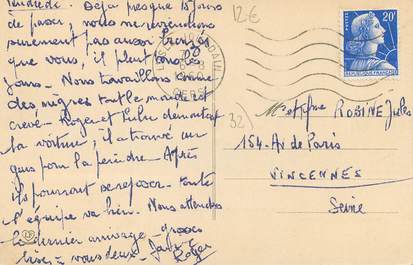 vendredi. Déjà presque 15 jours
de passer, nous ne
surement pas aussi bronzés
que vous, il pleut tous les
jours. Nous travaillons comme
des nègres tout le monde est
crevé - Roger et démontent
la voiture, il a trouvé un
pour la . Après
ils pourront se reposer. toute
l'équipe va bien. Nous attendons
le dernier arrivage - grosses
bises à vous deux -
Roger
12€
32)
POSTES
20F
REPUBLIQUE FRANÇAISE
GERS
Mr et Mme ROBINE Jules
154. Av de Paris
VINCENNES
Seine